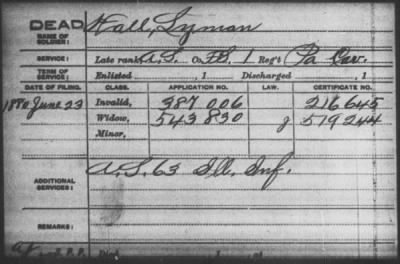 DEAD Hall, Lyman
NAME OF SOLDIER:
SERVICE: Late rank, A.S. Co. F&S. 1 Reg't Pa Cav.
TERM OF SERVICE: Enlisted , 1 Discharged , 1
DATE OF FILING. CLASS. APPLICATION NO. LAW. CERTIFICATE NO.
1880 June 23 Invalid, 387.006 216645
Widow, 543830 g 579244
Minor,
ADDITIONAL SERVICES: A.S. 63 Ill. Inf.
REMARKS:
Died , 1 , at